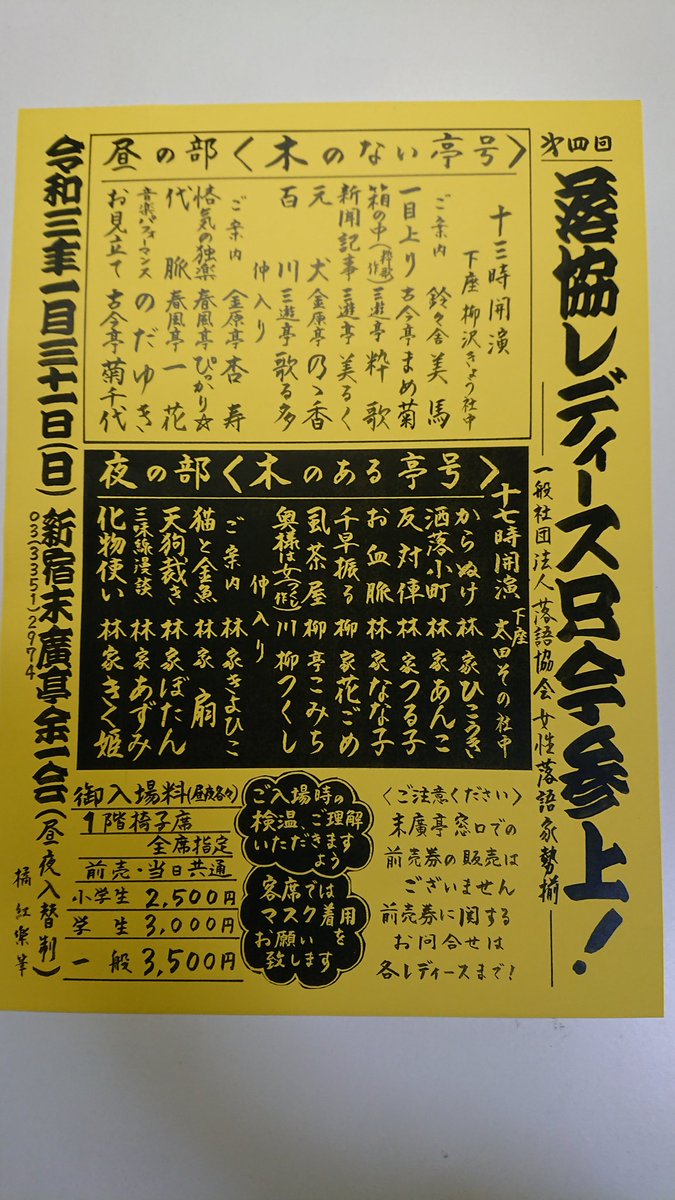 第四回
落協レディース只今参上!
一般社団法人 落語協会 女性落語家勢揃
昼の部〈木のない亭号〉
十三時開演
下座 柳沢きょう社中
ご案内 鈴々舎美馬
一目上り 古今亭まめ菊
箱の中(粋歌作) 三遊亭粋歌
新聞記事 三遊亭美るく
元犬 金原亭乃ゝ香
百川 三遊亭歌る多
仲入り
ご案内 金原亭杏寿
悋気の独楽 春風亭ぴっかり☆
代脈 春風亭一花
音楽パフォーマンス のだゆき
お見立て 古今亭菊千代
夜の部〈木のある亭号〉
十七時開演
下座 太田その社中
からぬけ 林家ひこうき
洒落小町 林家あんこ
反対俥 林家つる子
お血脈 林家なな子
千早振る 柳家花ごめ
虱茶屋 柳亭こみち
奥様は女(つくし作) 川柳つくし
仲入り
ご案内 林家きよひこ
猫と金魚 林家扇
天狗裁き 林家ぼたん
三味線漫談 林家あずみ
化物使い 林家きく姫
〈ご注意ください〉
末廣亭窓口での
前売券の販売は
ございません
前売券に関する
お問合せは
各レディースまで!
ご入場時の
検温 ご理解
いただきます
よう
客席では
マスク着用を
お願い
致します
御入場料(昼夜各々)
1階椅子席
全席指定
前売・当日共通
小学生 2,500円
学生 3,000円
一般 3,500円
令和三年一月三十一日(日) 新宿末廣亭余一会(昼夜入替制)
03(3351)2974
橘紅樂筆